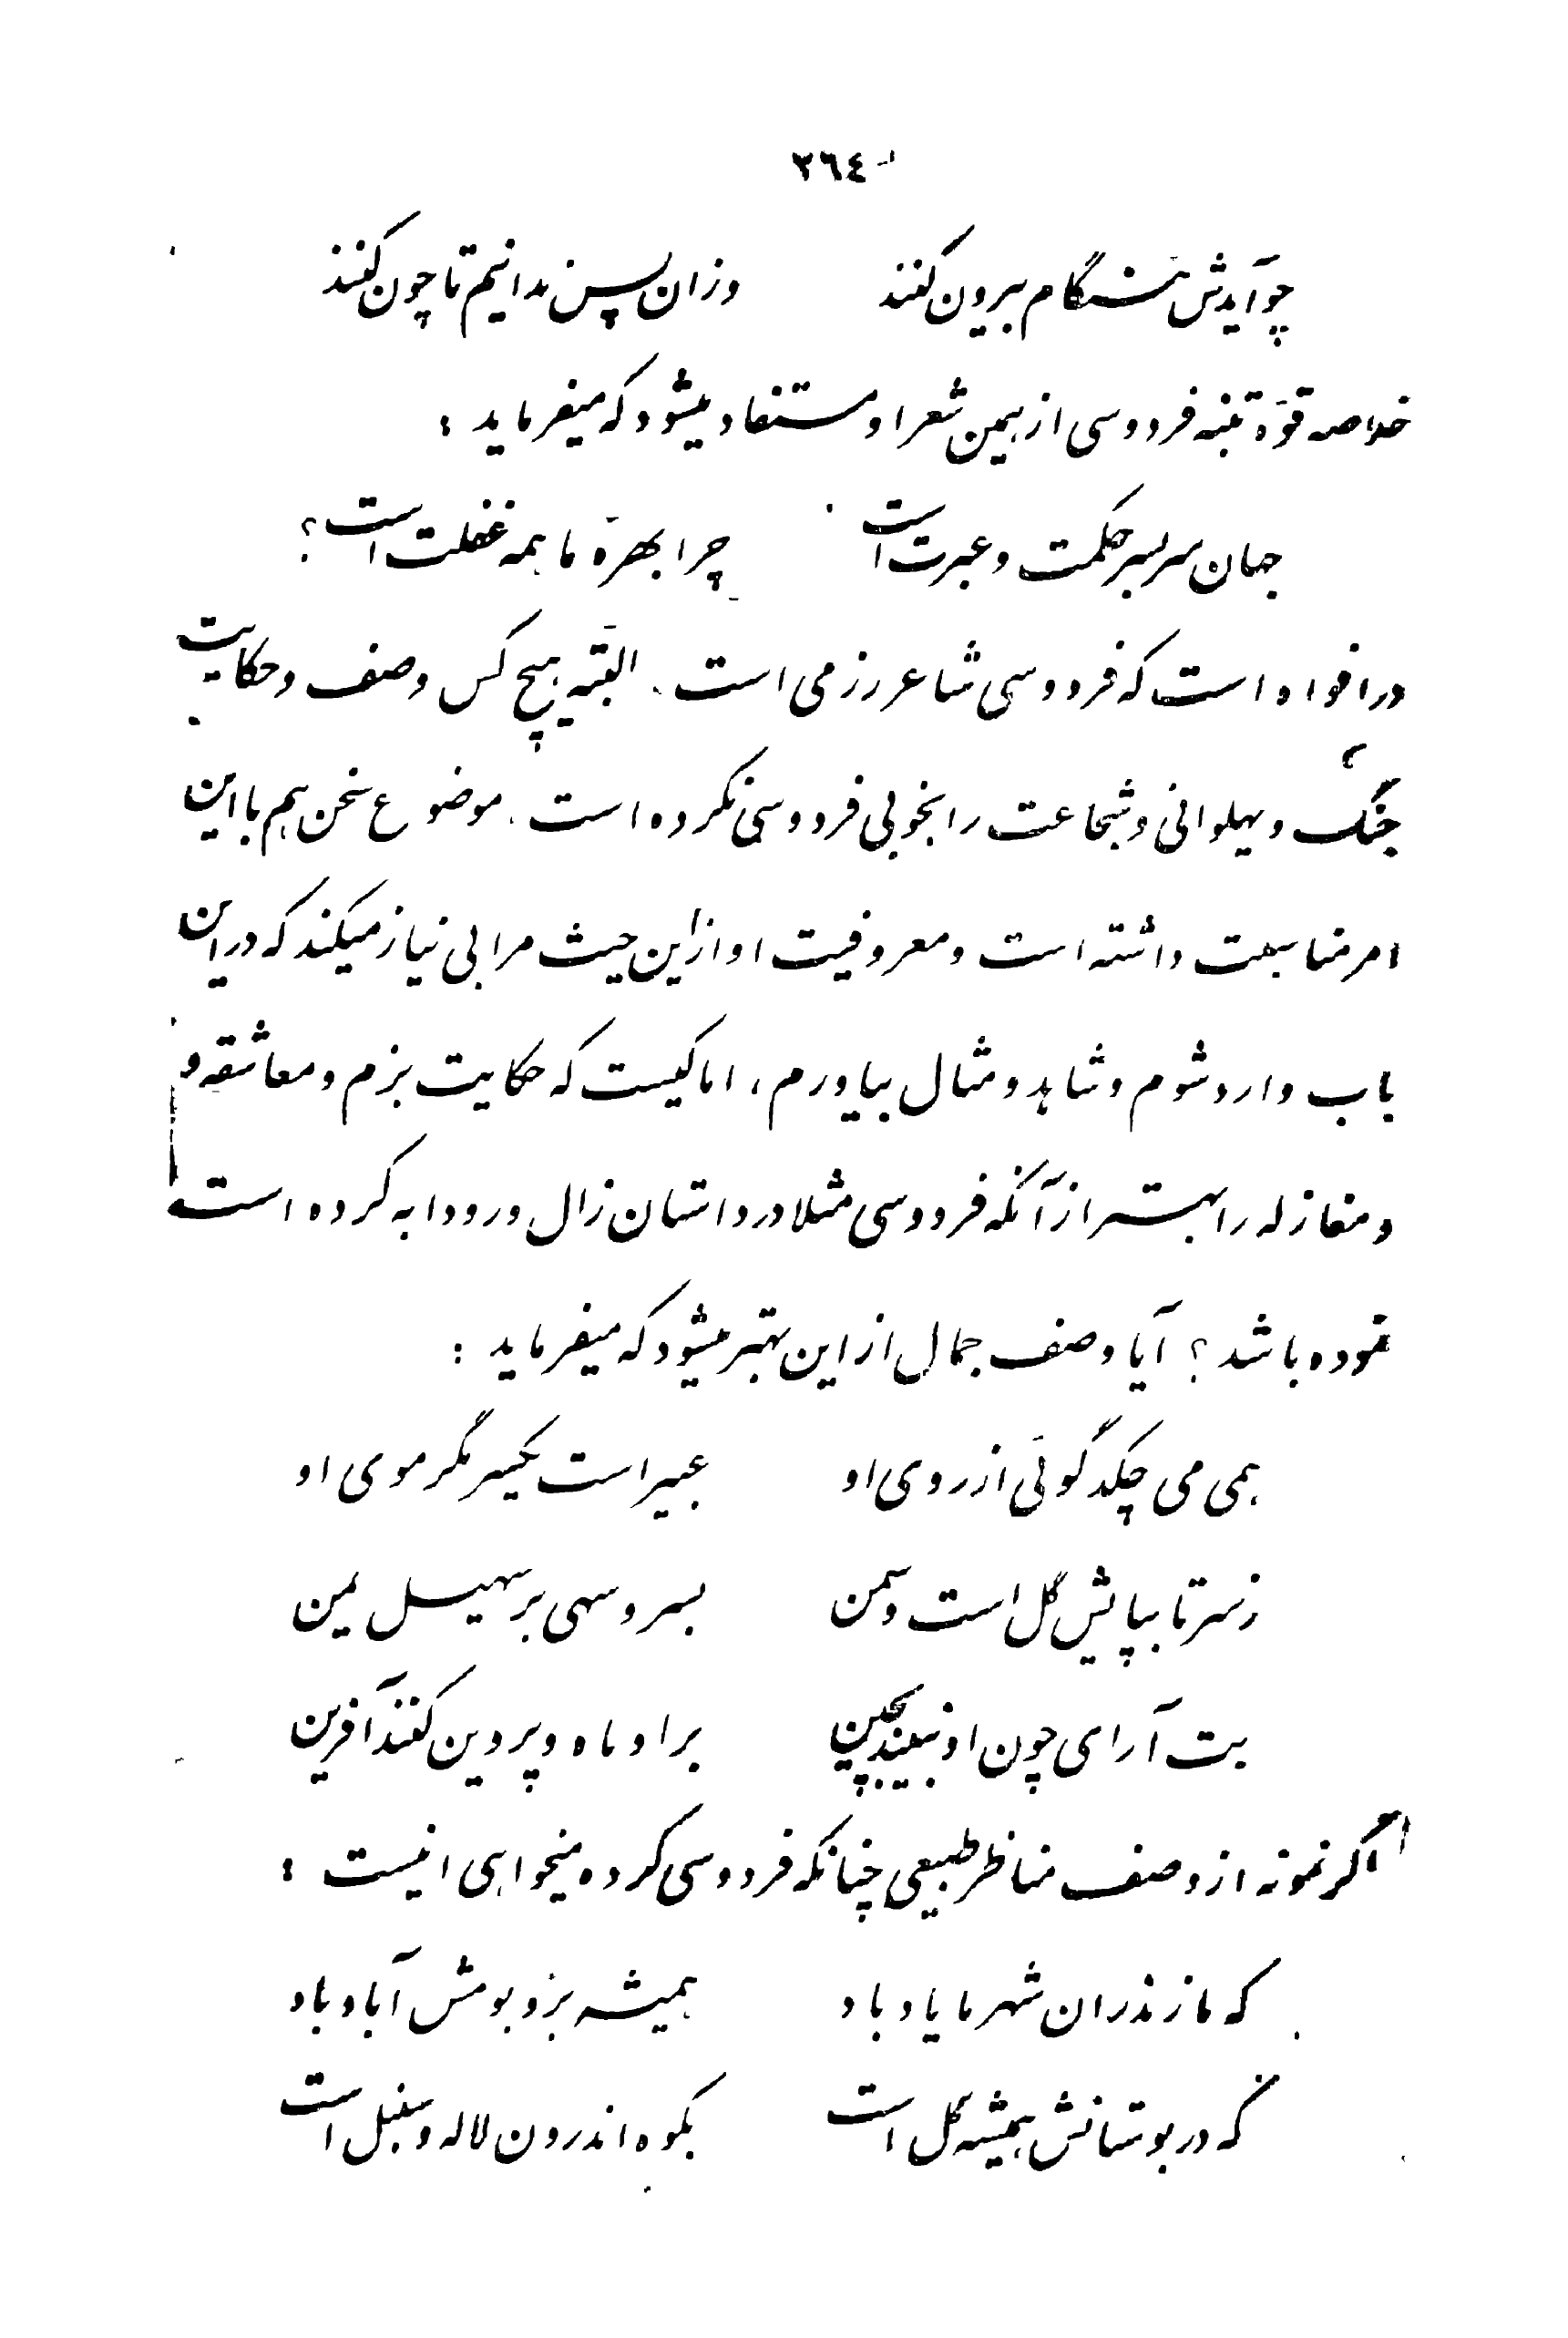 ٣٦٤
چو آیدش هنگام بیرون کنند وزان پس ندانیم تا چون کنند
خلاصه قوّهٔ تنبه فردوسی از همین شعر او مستفاد میشود که میفرماید :
جهان سربسر حکمت و عبرت است چرا بهرهٔ ما همه غفلت است ؟
در افواه است که فردوسی شاعر رزمی است . البتّه هیچ کس وصف و حکایت
جنگ و پهلوانی و شجاعت را بخوبی فردوسی نکرده است . موضوع سخن هم با این
امر مناسبت داشته است و معروفیت او از این حیث مرا بی نیاز میکند که در این
باب وارد شوم و شاهد و مثال بیاورم ، اما کیست که حکایت بزم و معاشقه و
و مغازله را بهتر از آنکه فردوسی مثلا در داستان زال و رودابه کرده است
نموده باشد ؟ آیا وصف جمال از این بهتر میشود که میفرماید :
همی می چکد گوئی از روی او عبیر است یکسر مگر موی او
ز سر تا بپایش گل است و سمن بسرو سهی بر سهیل یمن
بت آرای چون او نبیند بچین بر او ماه و پروین کنند آفرین
اگر نمونه از وصف مناظر طبیعی چنانکه فردوسی کرده میخواهی اینست :
که مازندران شهر ما یاد باد همیشه بر و بومش آباد باد
که در بوستانش همیشه گل است بکوه اندرون لاله و سنبل است